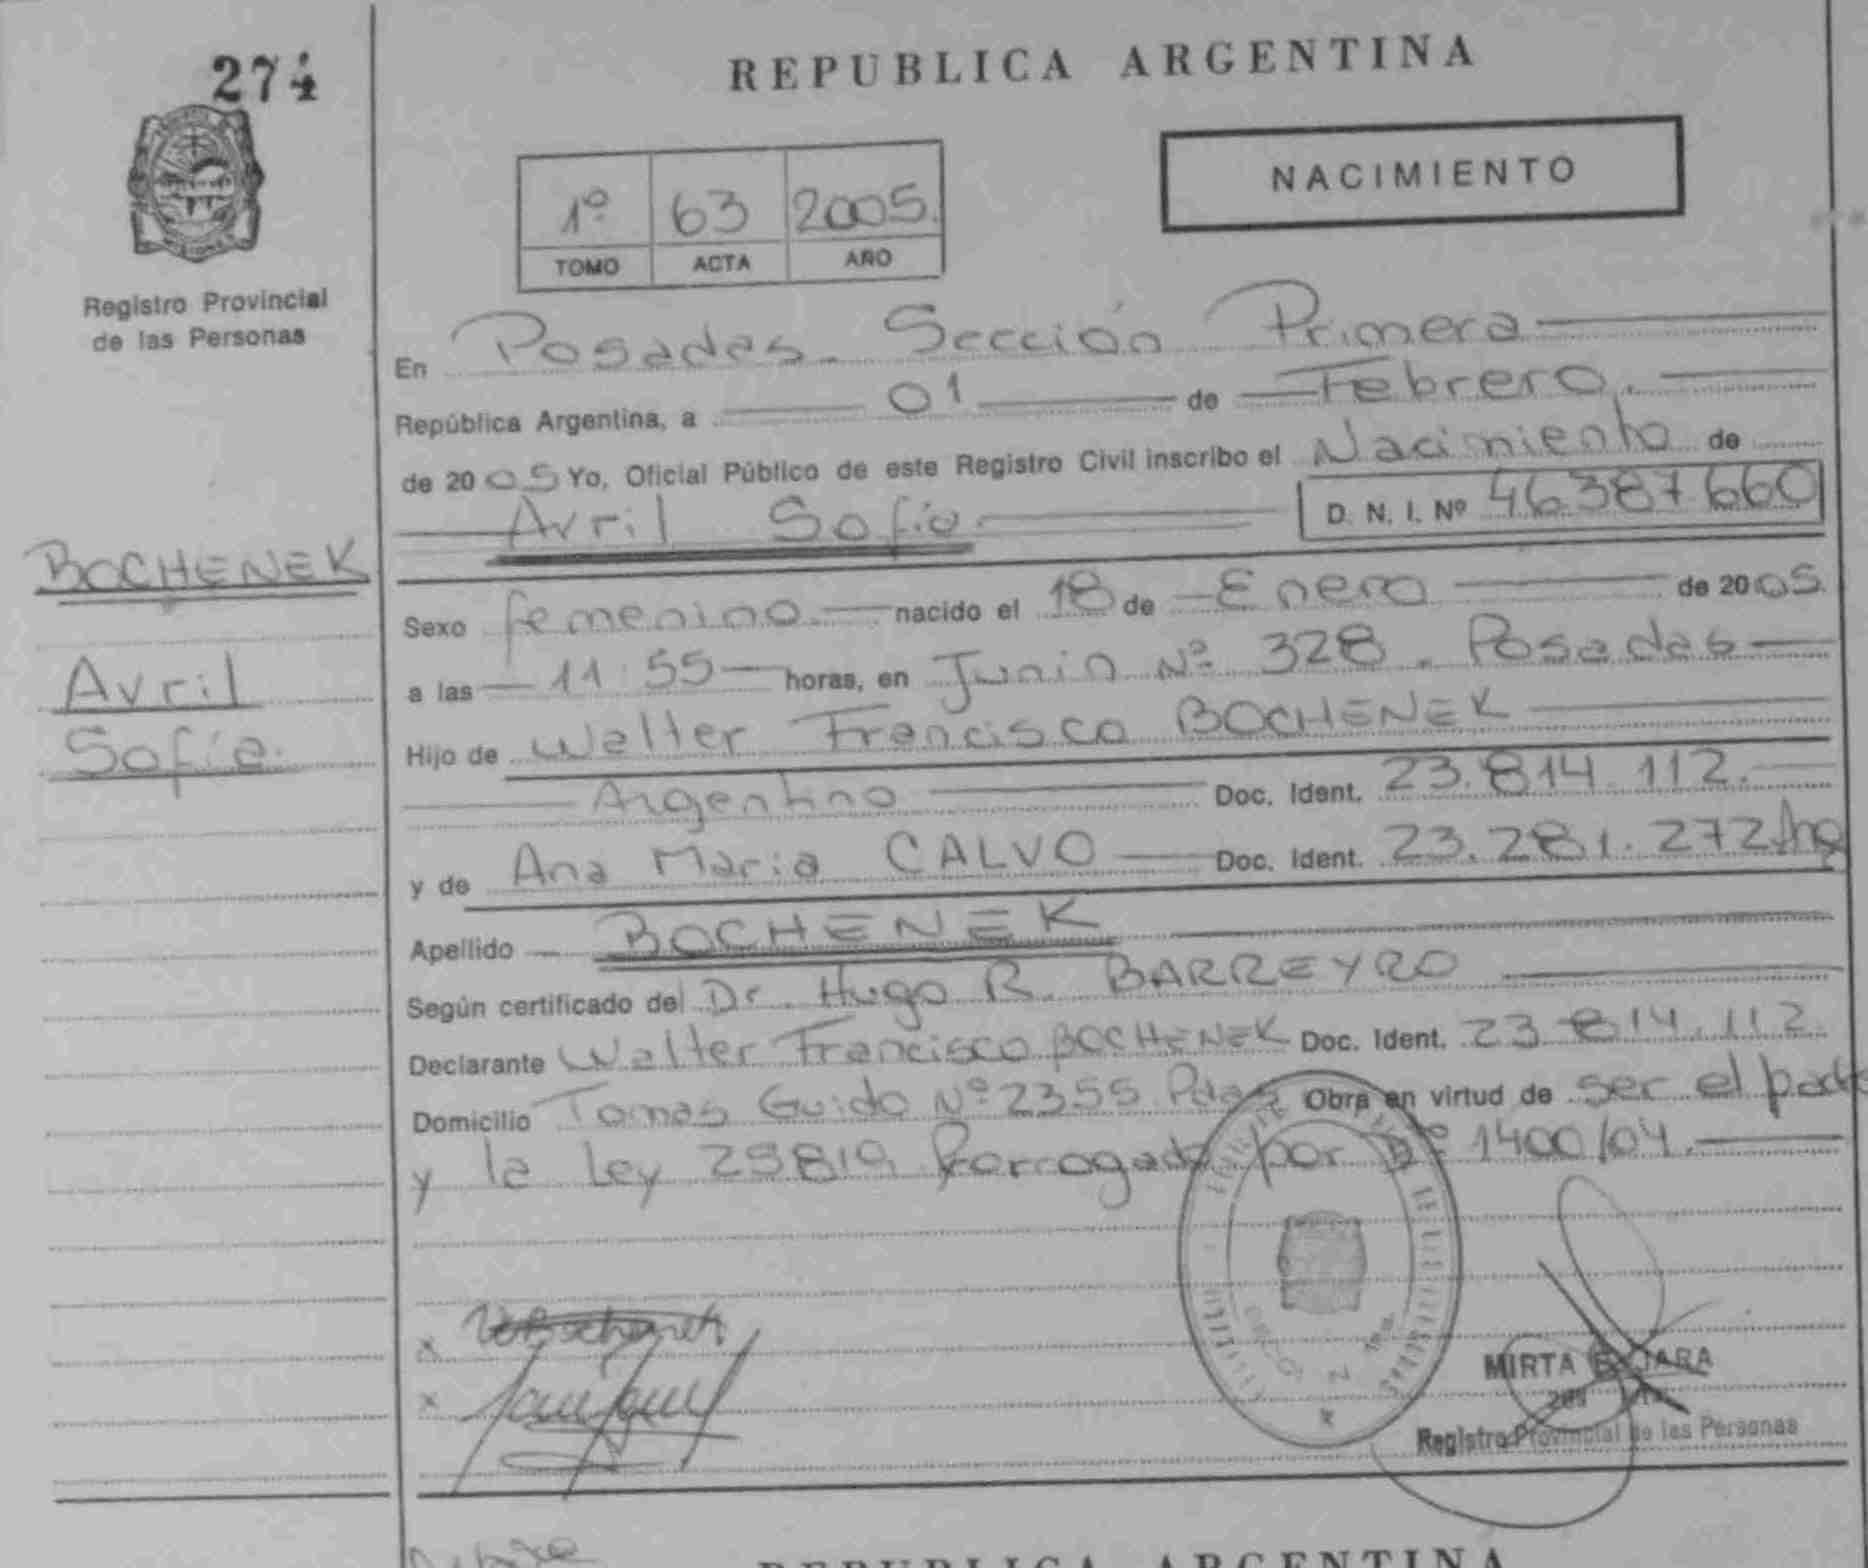 274
REPUBLICA ARGENTINA
NACIMIENTO
1º 63 2005.
TOMO ACTA AÑO
Registro Provincial
de las Personas
En Posadas. Sección Primera
República Argentina, a 01 de Febrero.
de 2005 Yo, Oficial Público de este Registro Civil inscribo el Nacimiento de
Avril Sofía D. N. I. Nº 46.387.660
BOCHENEK
Avril
Sofía.
Sexo femenino. nacido el 18 de Enero de 2005.
a las 11:55 horas, en Junin Nº 328. Posadas
Hijo de Walter Francisco BOCHENEK
Argentino Doc. Ident. 23.814.112.
y de Ana Maria CALVO Doc. Ident. 23.281.272 Arg
Apellido BOCHENEK
Según certificado del Dr. Hugo R. BARREYRO
Declarante Walter Francisco BOCHENEK Doc. Ident. 23.814.112.
Domicilio Tomas Guido Nº 2355 Pdas Obra en virtud de ser el padre
y la Ley 25819 Prorrogada por Dº 1400/04.
MIRTA JARA
Registro Provincial de las Personas
REPUBLICA ARGENTINA